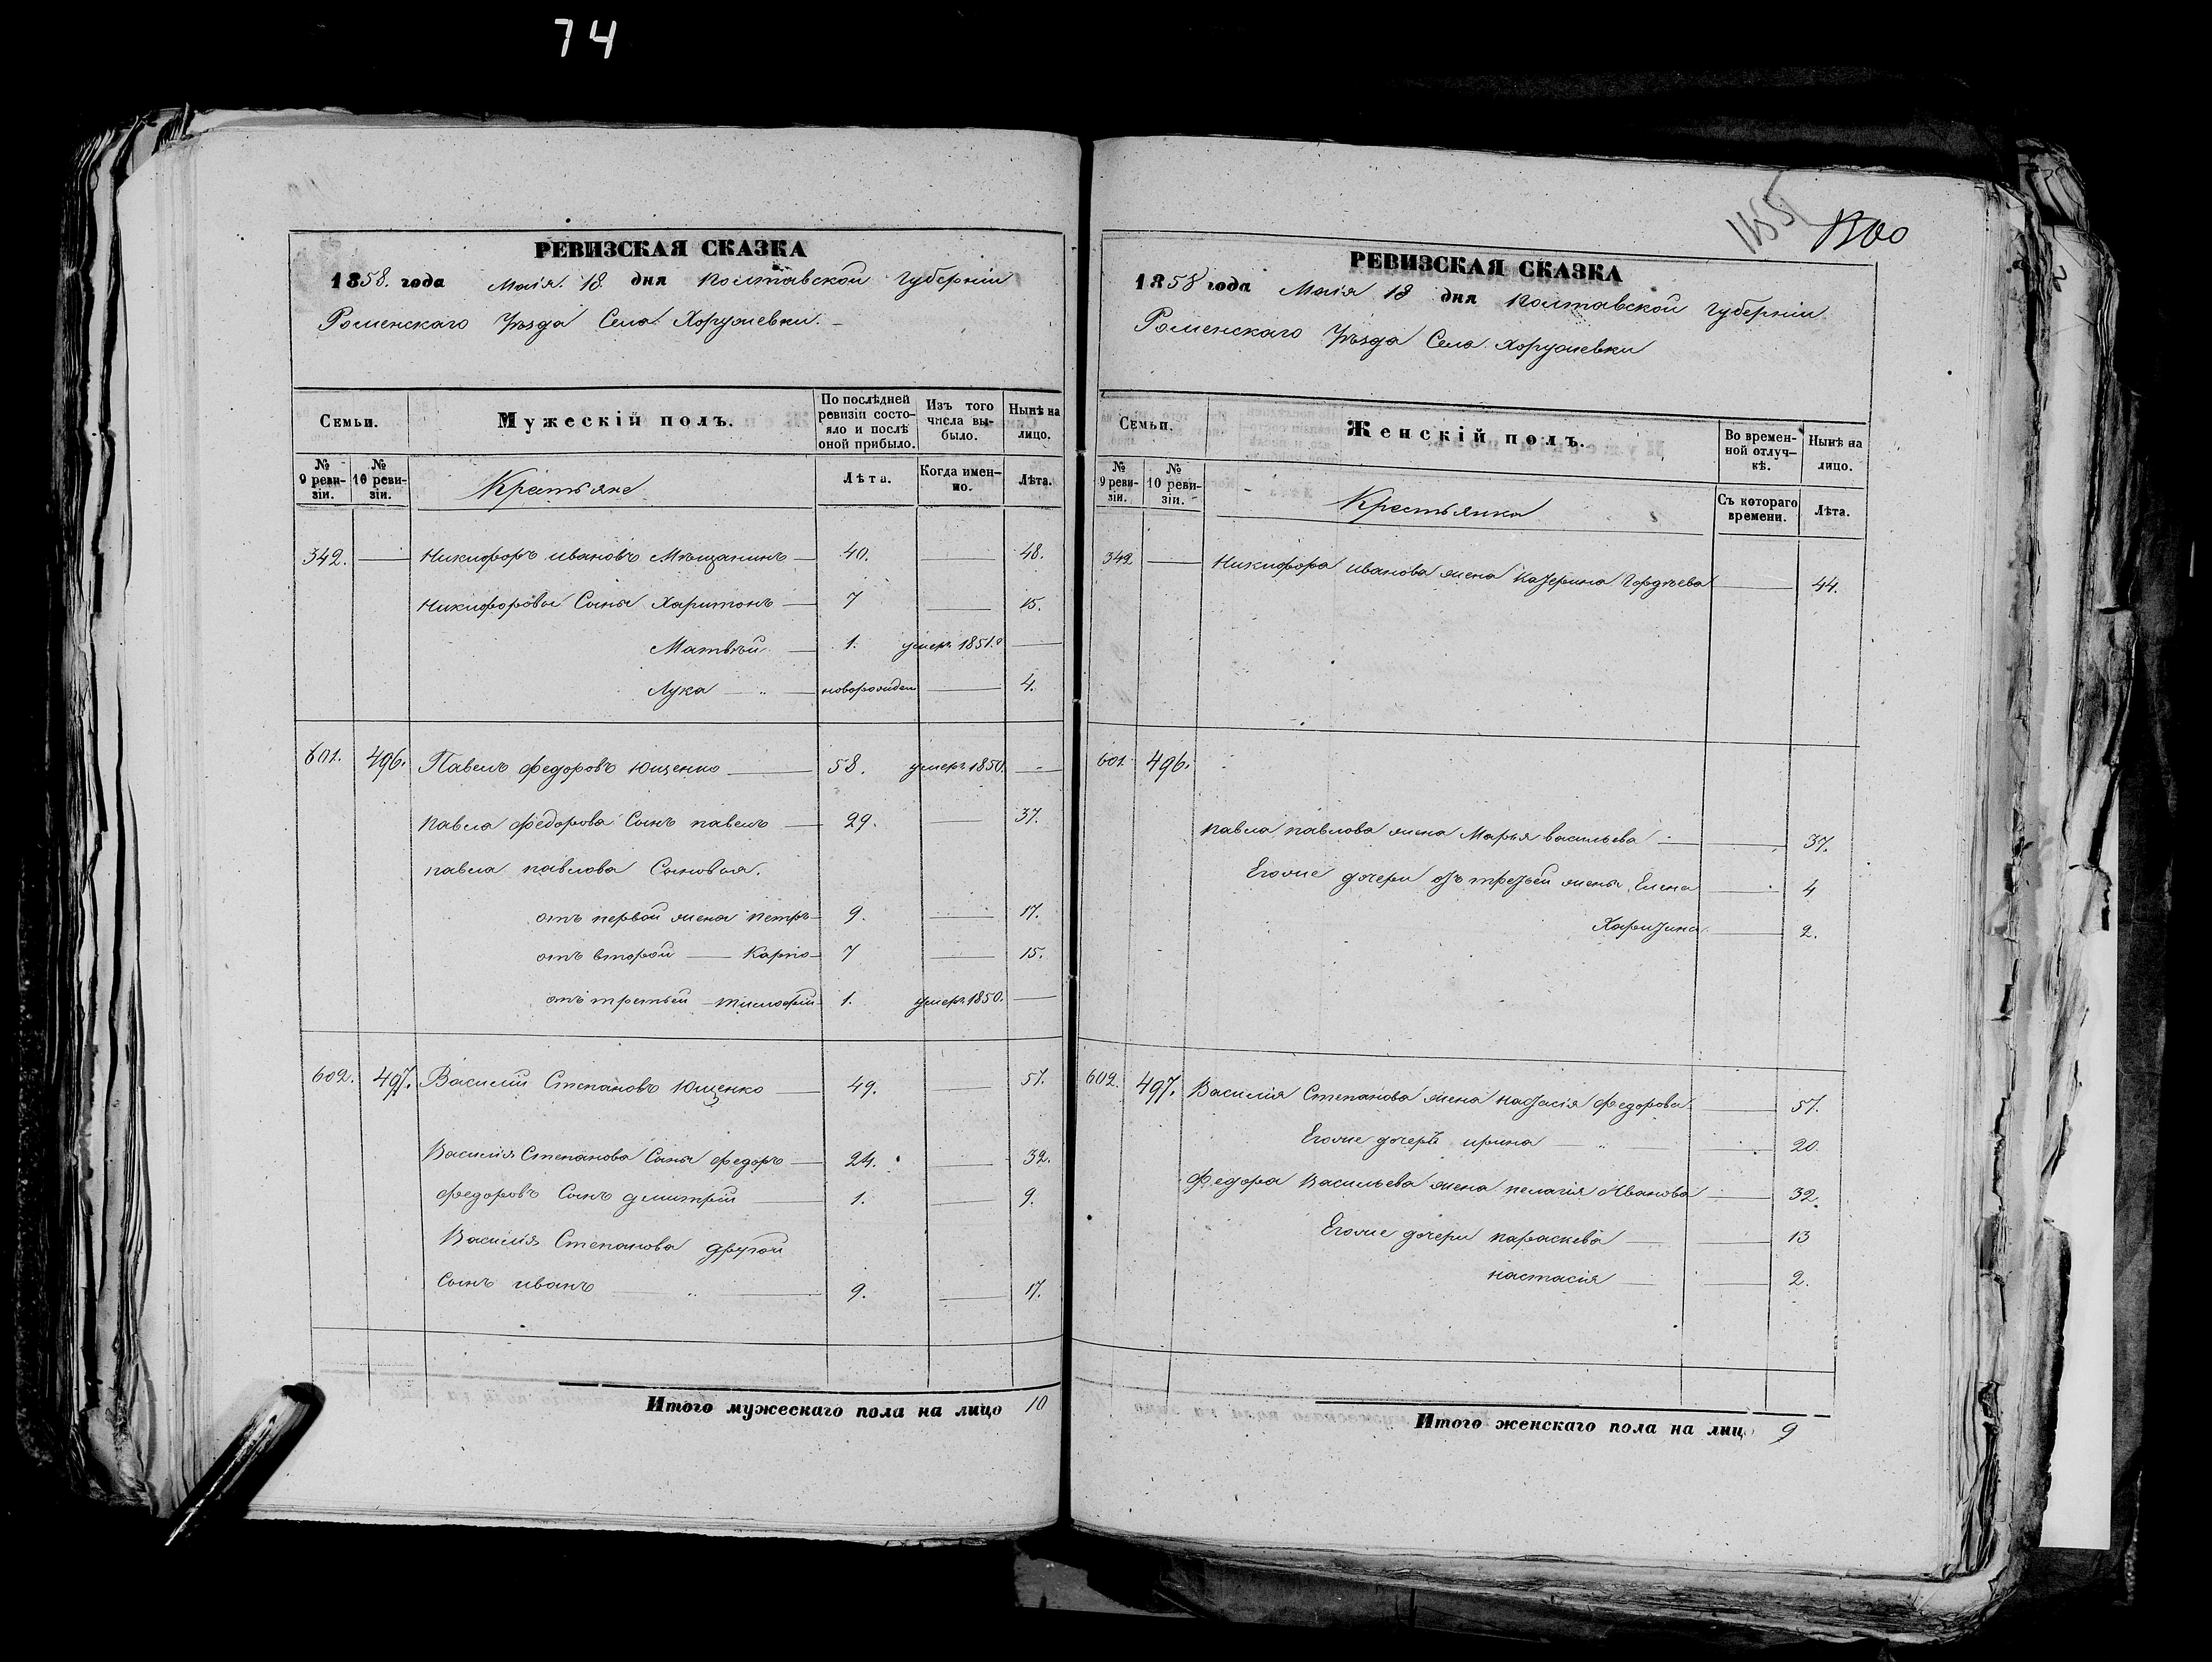 74
РЕВИЗСКАЯ СКАЗКА
1858. года Маія. 18. дня Полтавской Губерніи
Роменскаго Уѣзда Села Хоружевки.
Семьи.
Мужескій полъ.
По послѣдней ревизіи состояло и послѣ оной прибыло.
Изъ того числа выбыло.
Нынѣ на лицо.
№ 9 ревизіи.
№ 10 ревизіи.
Крестьяне
Лѣта.
Когда именно.
Лѣта.
342. Никифоръ Ивановъ Мѣщанинъ 40. 48.
Никифоровы Сыны Харитонъ 7 15.
Матвѣй 1. умеръ 1851.
Лука новорожден 4.
601. 496. Павелъ Федоровъ Ющенко 58. умеръ 1850.
Павла Федорова Сынъ Павелъ 29. 37.
Павла Павлова Сыновья.
отъ первой жены Петръ 9. 17.
отъ второй Карпо 7 15.
отъ третьей Тимофій 1. умеръ 1850.
602. 497. Василій Степановъ Ющенко 49. 57.
Василія Степанова Сыны Федоръ 24. 32.
Федоровъ Сынъ Дмитрій 1. 9.
Василія Степанова другой
Сынъ Иванъ 9. 17.
Итого мужескаго пола на лицо 10
РЕВИЗСКАЯ СКАЗКА
1858 года Маія 18 дня Полтавской Губерніи
Роменскаго Уѣзда Села Хоружевки
Семьи.
Женскій полъ.
Во временной отлучкѣ.
Нынѣ на лицо.
№ 9 ревизіи.
№ 10 ревизіи.
Крестьянки
Съ котораго времени.
Лѣта.
342 Никифора Иванова жена Катерина Гордѣева 44.
601. 496.
Павла Павлова жена Марья Васильева 37.
Егоже дочери отъ третьей жены Елена 4
Харитина 2.
602. 497. Василія Степанова жена Настасія Федорова 57.
Егоже дочерь Ирина 20.
Федора Васильева жена Пелагія Иванова 32.
Егоже дочери Параскева 13
Настасія 2.
Итого женскаго пола на лицо 9